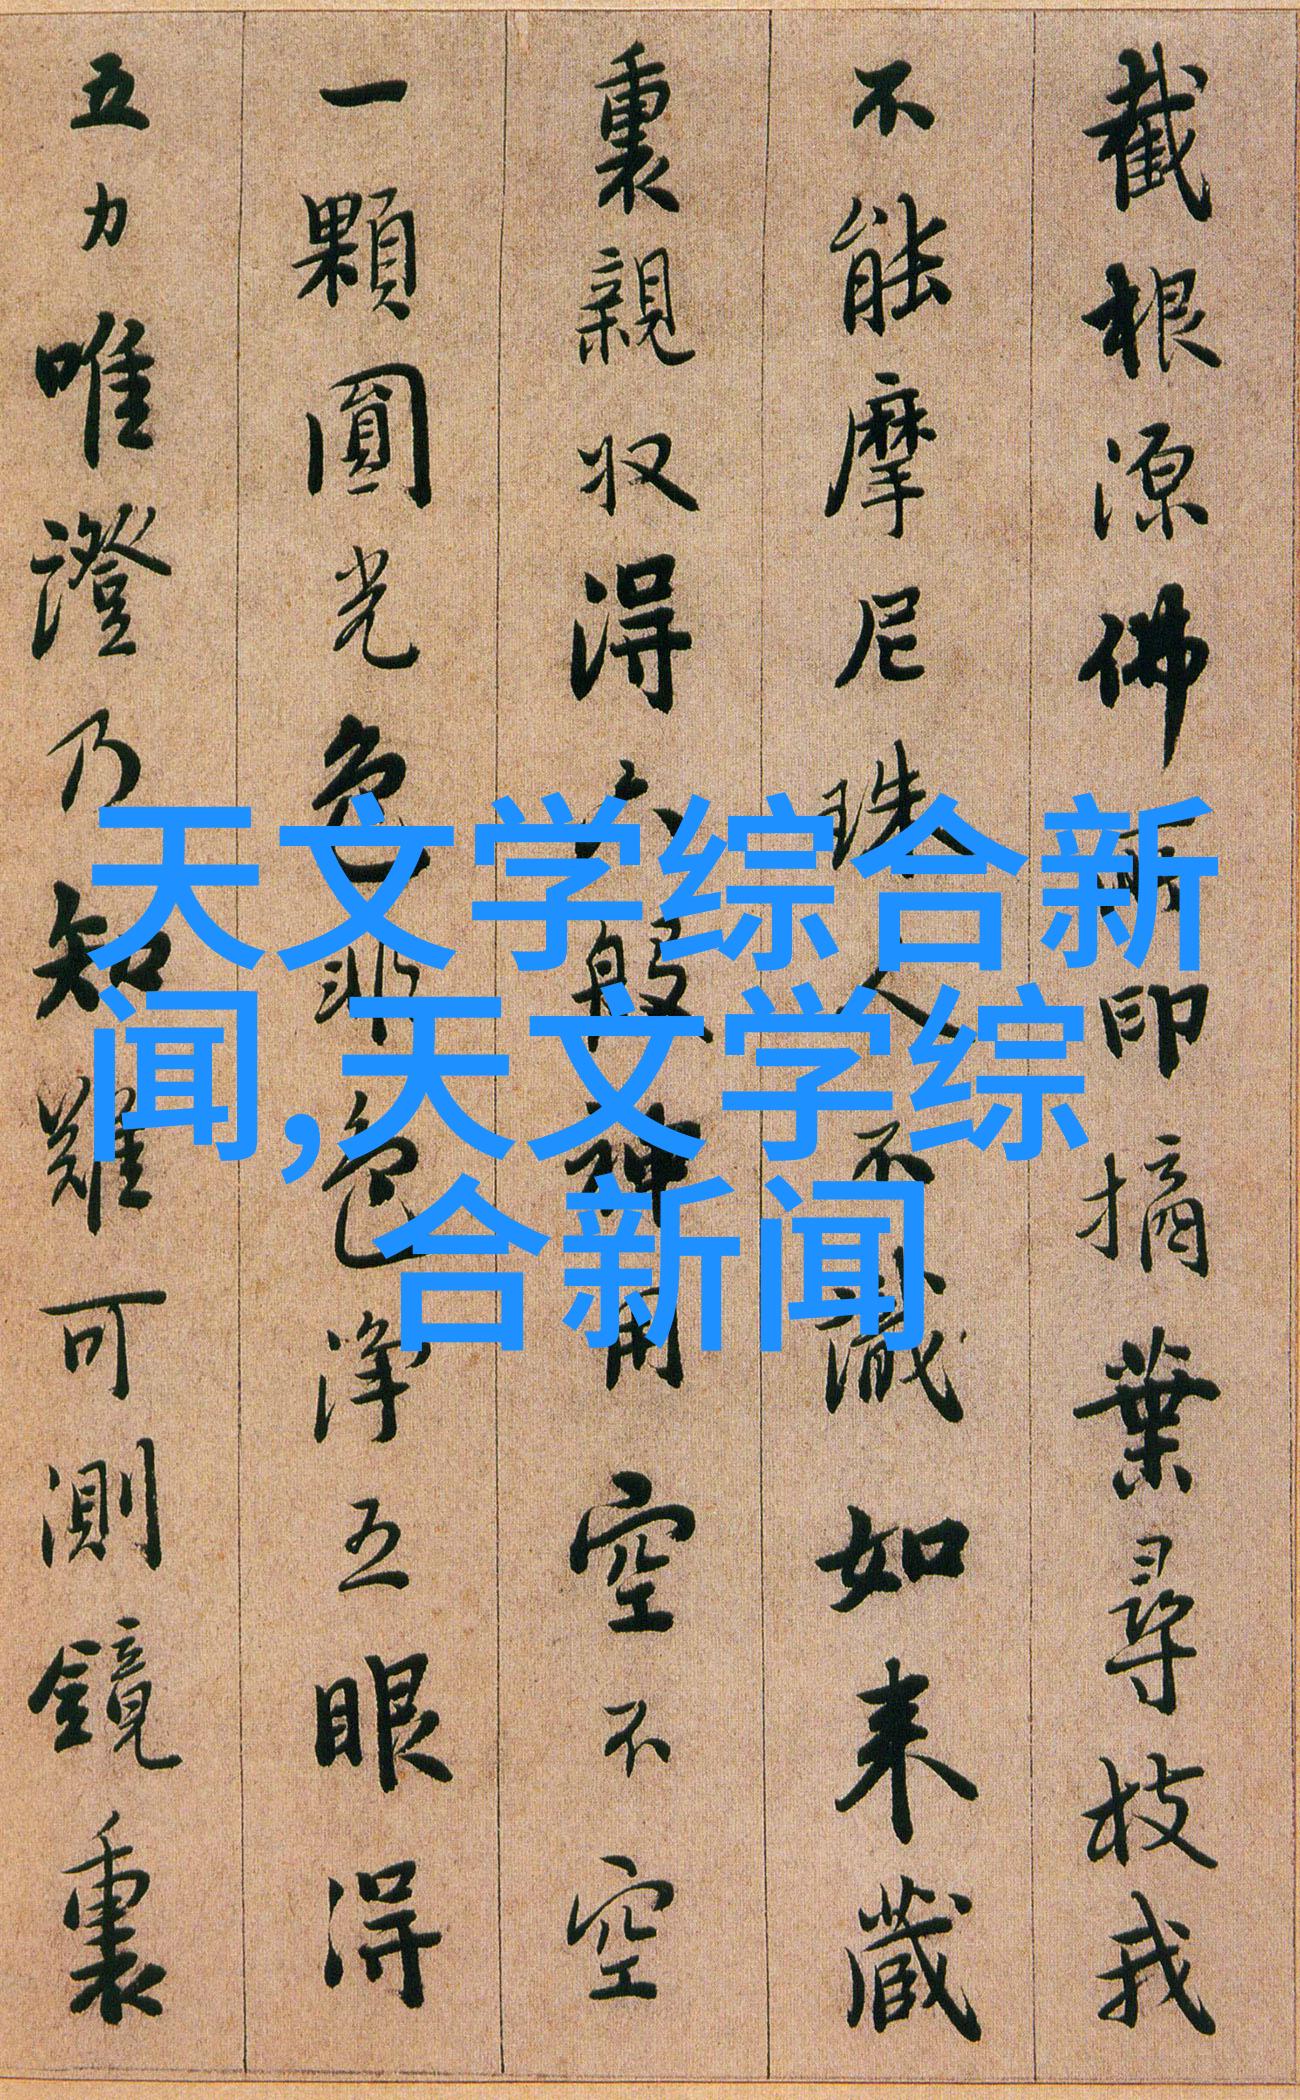 截根源佛所印摘葉尋枝我
不能摩尼珠人不識如来藏
裏親収得六般神用空不空
一顆圓光色非色淨五眼得
五力唯證乃知難可測鏡裏
天文学综合新
闻,天文学综
合新闻